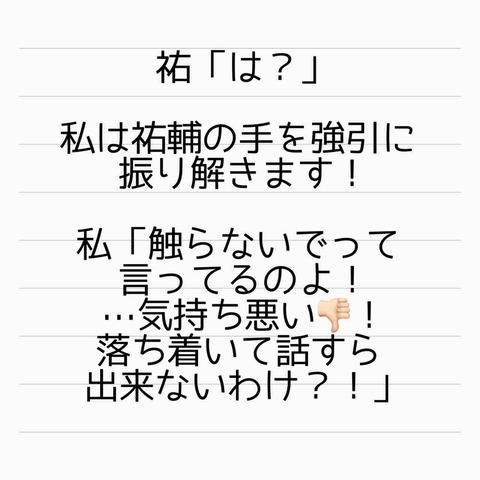 祐「は？」
私は祐輔の手を強引に
振り解きます！
私「触らないでって
言ってるのよ！
…気持ち悪い👎🏻！
落ち着いて話すら
出来ないわけ？！」